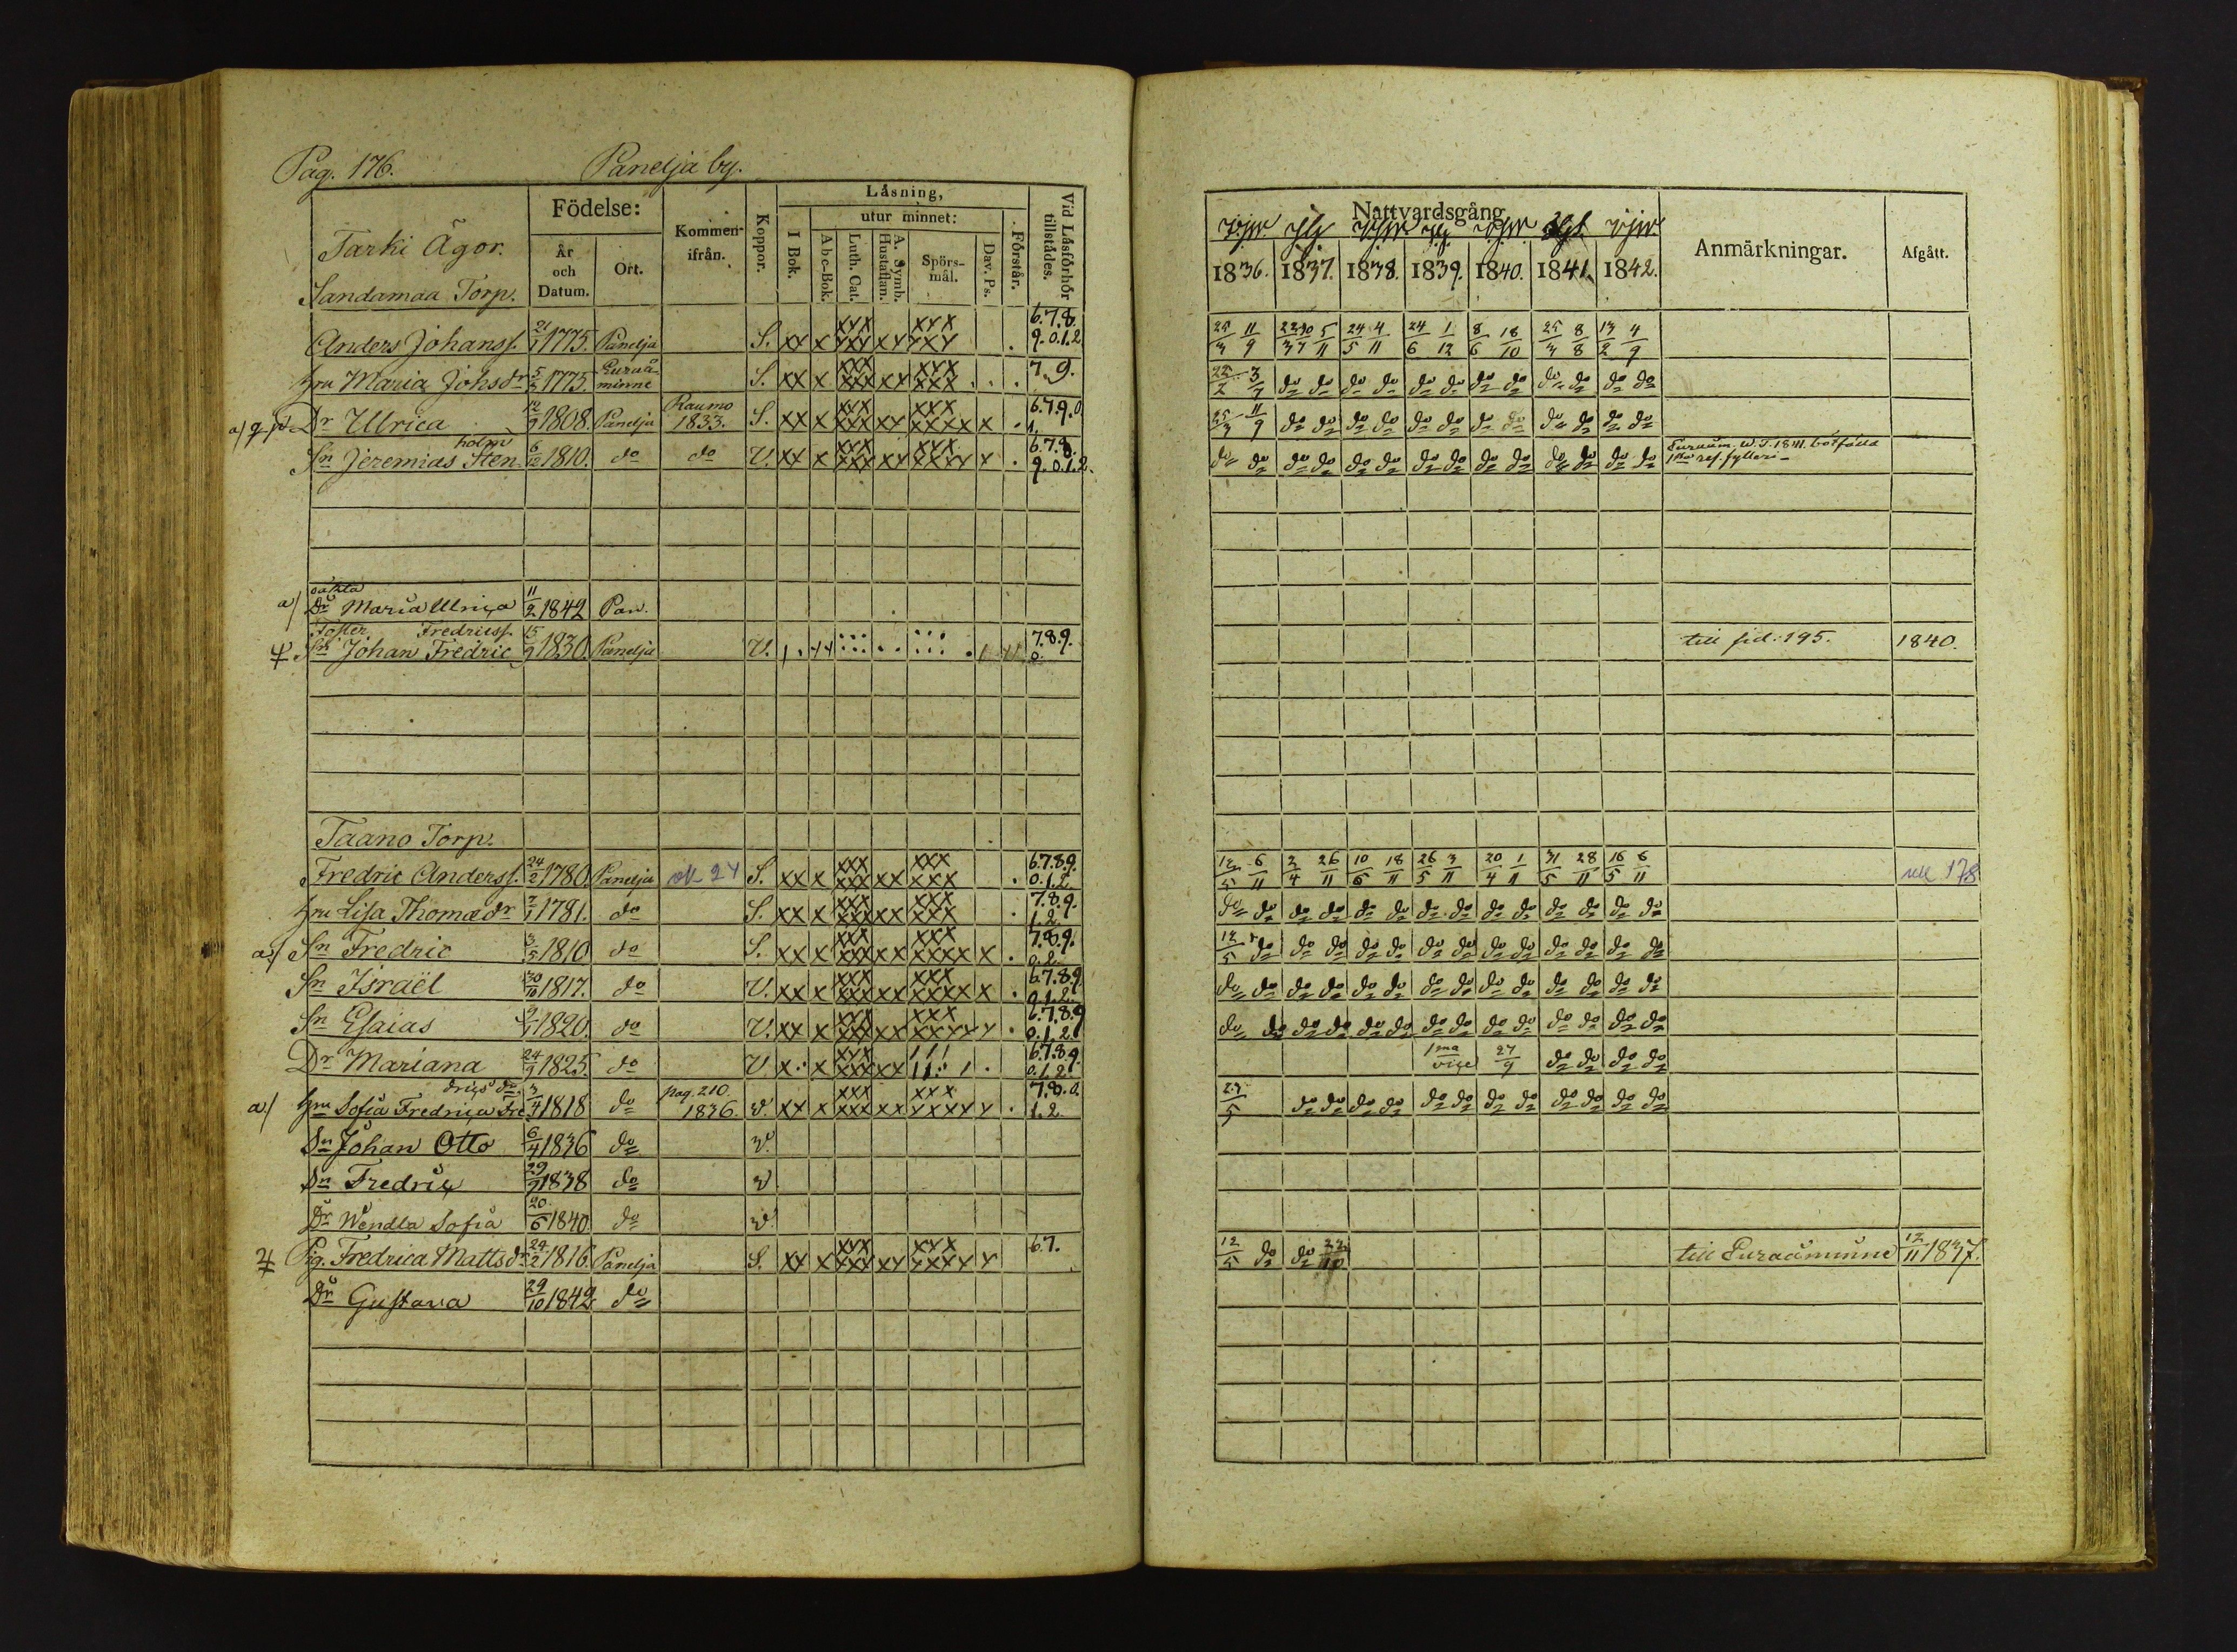 Pag. 176. Panelja by.
Tarki Ägor.
Sandamaa Torp.
Födelse:
År och Datum.
Ort.
Kommen ifrån.
Koppor.
Läsning,
I Bok.
utur minnet:
Abc-Bok.
Luth. Cat.
A. Symb. Hustaflan.
Spörs-mål.
Dav. Ps.
Förstår.
Vid Läsförhör tillstädes.
Nattvardsgång
1836. 1837. 1838. 1839. 1840. 1841. 1842.
Anmärkningar.
Afgått.
Anders Johanss. 1775. Panelja S. xx x xxx xxx xx xxx xxx . 6.7.8. 9.0.1.2
25/3 11/9 5/11 24/5 4/11 24/6 1/12 8/6 18/10 25/3 8/8 13/2 4/9
hru Maria Johsdr 5/3 1775. Euraå-minne S. xx x xxx xxx xx xxx xxx . . . 7.9.
do do do do do do do do do do do do
a) Dr Ulrica 1808. Panelja Raumo 1833. S. xx x xxx xxx xx xxx xxxx x . 6.7.9.0 1.
25/3 11/9 do do do do do do do do do do do do
Sn Jeremias Stenholm 6/12 1810. do do V. xx x xxx xxx xx xxx xxxx x . 6.7.8. 9.0.1.2.
do do do do do do do do do do do do do do
Euraåm. W. T. 1841. bötfälld
1sta res. fylleri
a) oäkta
Dr Maria Ulrica 11/2 1842 Pan.
Foster Fredricss.
Sn Johan Fredric 15/9 1830. Panelja V. 7.8.9. 0. till sid. 195. 1840.
Taano Torp.
Fredric Anderss. 24/2 1780. Panelja S. xx x xxx xxx xx xxx xxx . 6.7.8.9. 0.1.2.
12/5 6/11 2/4 26/11 10/6 18/11 26/5 3/11 20/4 1/11 31/5 28/11 16/5 6/11 178
hru Lisa Thomædr 7/1 1781. do S. xx x xxx xxx xx xxx xxx . 7.8.9. 1.2.
do do do do do do do do do do do do do do
a) Sn Fredric 3/5 1810 do S. xx x xxx xxx xx xxx xxxx x . 7.8.9. 0.2.
12/5 do do do do do do do do do do do do do
Sn Israël 30/10 1817. do V. xx x xxx xxx xx xxx xxxx x . 6.7.8.9 0.1.2.
do do do do do do do do do do do do do do
Sn Esaias 1820. do V. xx x xxx xxx xx xxx xxxx x . 6.7.8.9 0.1.2.
do do do do do do do do do do do do do do
Dr Mariana 24/9 1825. do V 6.7.8.9. 0.1.2.
1ma vice 27/9 do do do do
a) hru Sofia Fredrica Fredricsdr 3/4 1818 do pag. 210. 1836. v. xx x xxx xxx xx xxx xxxx x . 7.8.0. 1.2.
23/5 do do do do do do do do do do do do
Sn Johan Otto 6/4 1836 do v.
Sn Fredric 29/9 1838 do v
Dr Wendla Sofia 20/6 1840 do v.
Pig. Fredrica Mattsdr 1816. Panelja S. xx x xxx xxx xx xxx xxxx x 6.7.
12/5 do do 22/10 till Euraåminne 12/11 1837.
Dr Gustava 29/10 1842. do